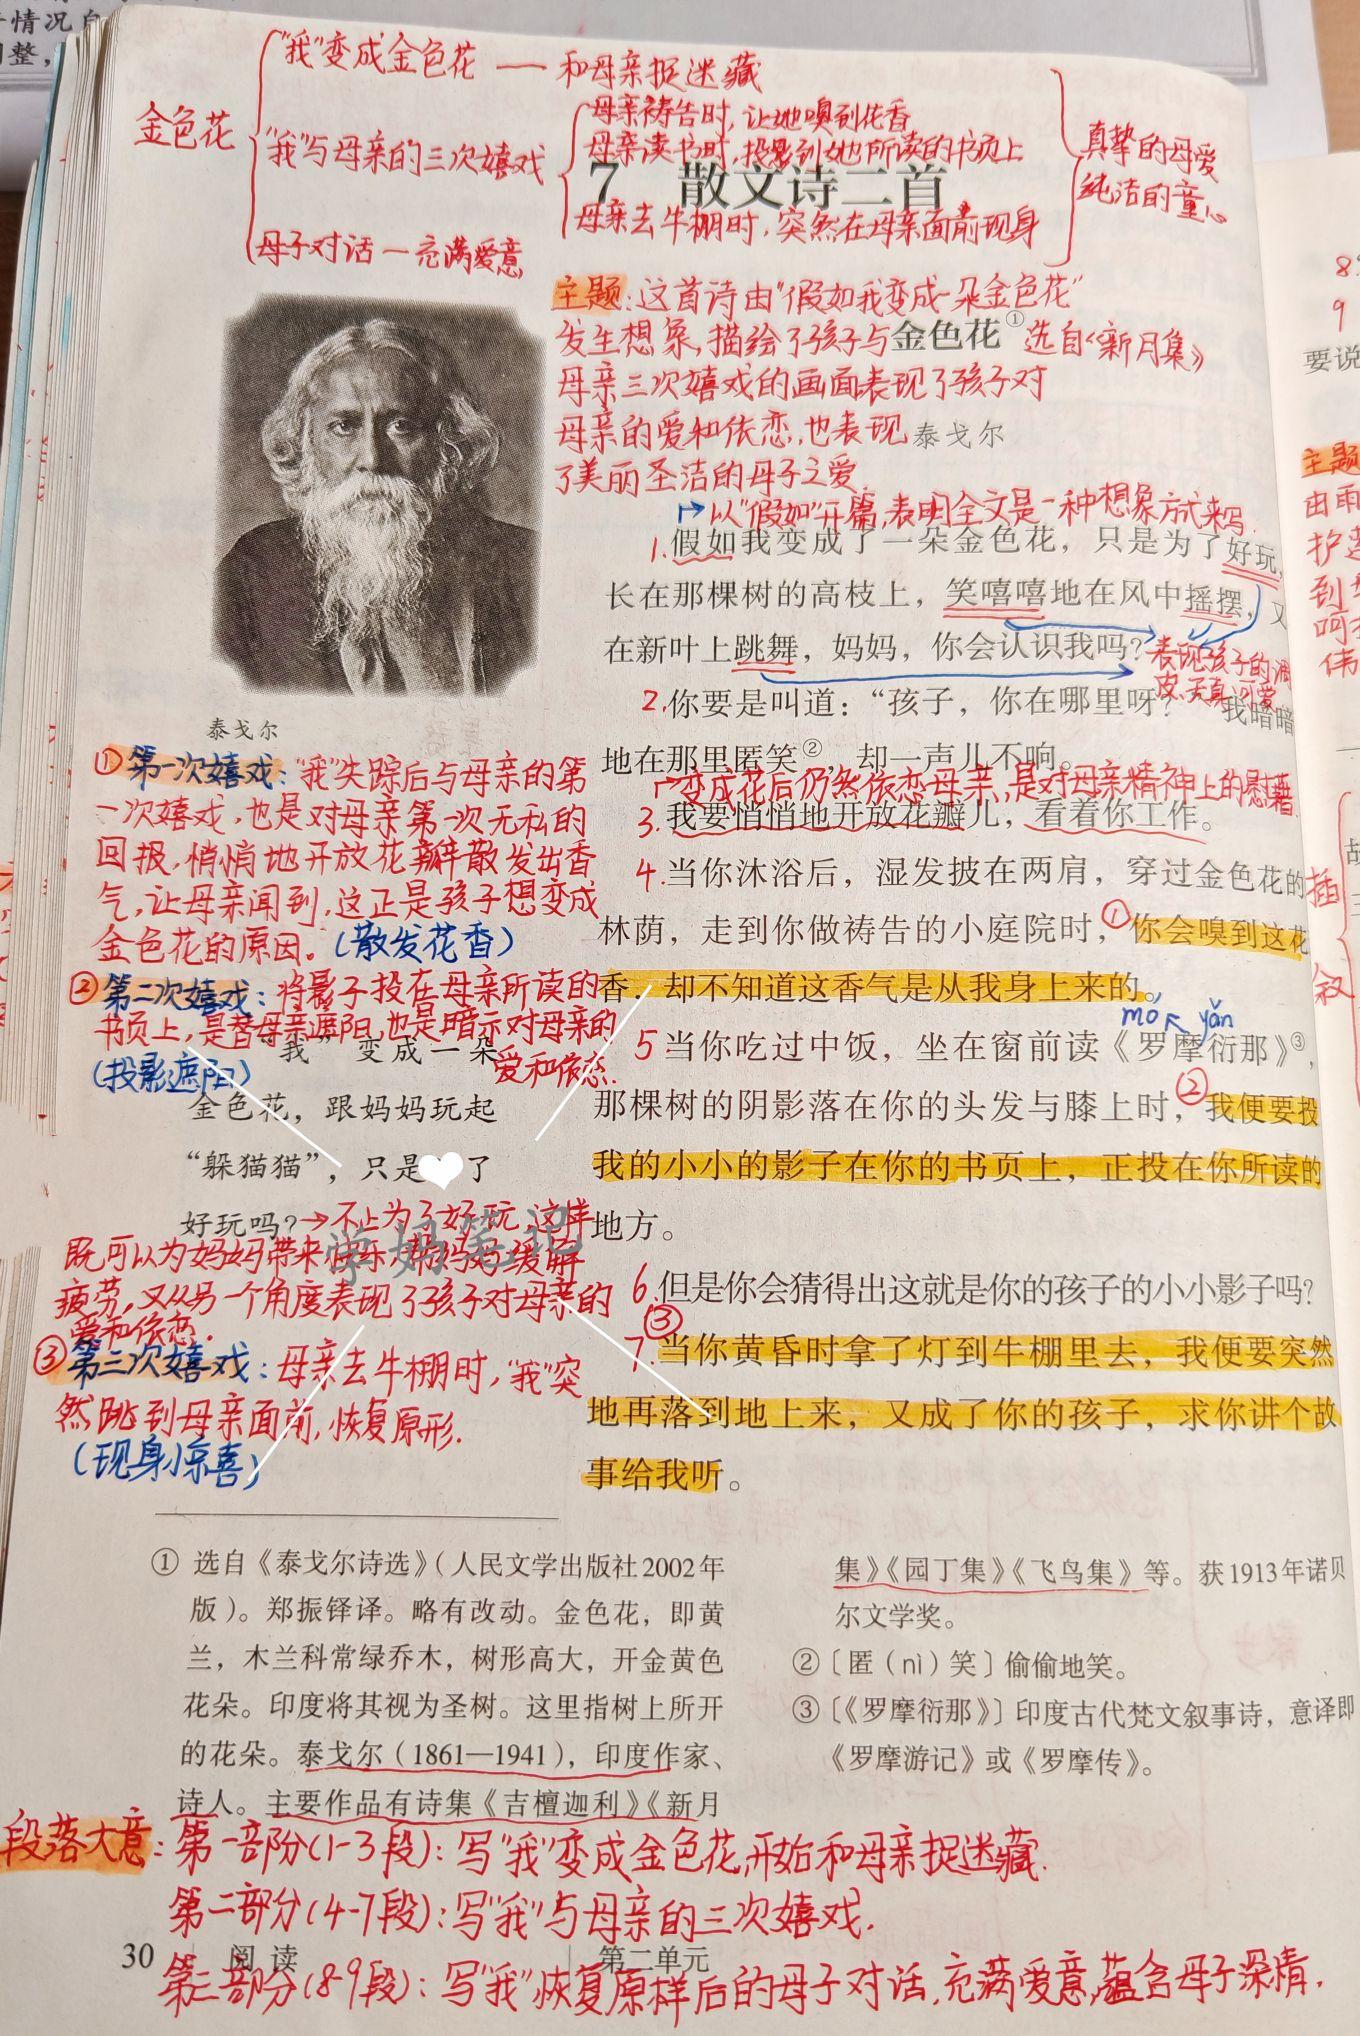 情况自
调整，
“我”变成金色花 — 和母亲捉迷藏
金色花
母亲祷告时，让她嗅到花香
“我”与母亲的三次嬉戏
母亲读书时，投影到她所读的书页上
真挚的母爱
纯洁的童心
7 散文诗二首
母亲去牛棚时，突然在母亲面前现身
母子对话—充满爱意
主题：这首诗由“假如我变成一朵金色花”
发生想象，描绘了孩子与
金色花① 选自《新月集》
母亲三次嬉戏的画面表现了孩子对
母亲的爱和依恋，也表现
泰戈尔
了美丽圣洁的母子之爱
→以“假如”开篇，表明全文是一种想象方式来写.
1.假如我变成了一朵金色花，只是为了好玩，
长在那棵树的高枝上，笑嘻嘻地在风中摇摆，又
在新叶上跳舞，妈妈，你会认识我吗？
表现孩子的调
皮、天真、可爱
2.你要是叫道：“孩子，你在哪里呀？” 我暗暗
地在那里匿笑②，却一声儿不响。
变成花后仍然依恋母亲，是对母亲精神上的慰藉.
3.我要悄悄地开放花瓣儿，看着你工作。
4.当你沐浴后，湿发披在两肩，穿过金色花的
林荫，走到你做祷告的小庭院时，①你会嗅到这花
香，却不知道这香气是从我身上来的。
mó yǎn
5当你吃过中饭，坐在窗前读《罗摩衍那》③，
那棵树的阴影落在你的头发与膝上时，②我便要投
我的小小的影子在你的书页上，正投在你所读的
地方。
6.但是你会猜得出这就是你的孩子的小小影子吗？
③
7.当你黄昏时拿了灯到牛棚里去，我便要突然
地再落到地上来，又成了你的孩子，求你讲个故
事给我听。
泰戈尔
①第一次嬉戏：“我”失踪后与母亲的第
一次嬉戏，也是对母亲第一次无私的
回报，悄悄地开放花瓣散发出香
气，让母亲闻到，这正是孩子想变成
金色花的原因。（散发花香）
②第二次嬉戏：将影子投在母亲所读的
书页上，是替母亲遮阳，也是暗示对母亲的
爱和依恋.
（投影遮阳）
“我”变成一朵
金色花，跟妈妈玩起
“躲猫猫”，只是 了
好玩吗？
→不止为了好玩，这样
既可以为妈妈带来快乐，帮妈妈缓解
疲劳，又从另一个角度表现了孩子对母亲的
爱和依恋.
学妈笔记
③第三次嬉戏：母亲去牛棚时，“我”突
然跳到母亲面前，恢复原形.
（现身惊喜）
① 选自《泰戈尔诗选》（人民文学出版社2002年
版）。郑振铎译。略有改动。金色花，即黄
兰，木兰科常绿乔木，树形高大，开金黄色
花朵。印度将其视为圣树。这里指树上所开
的花朵。泰戈尔（1861—1941），印度作家、
诗人。主要作品有诗集《吉檀迦利》《新月
集》《园丁集》《飞鸟集》等。获1913年诺贝
尔文学奖。
②〔匿（nì）笑〕偷偷地笑。
③〔《罗摩衍那》〕印度古代梵文叙事诗，意译即
《罗摩游记》或《罗摩传》。
段落大意：第一部分(1-3段)：写“我”变成金色花，开始和母亲捉迷藏.
第二部分(4-7段)：写“我”与母亲的三次嬉戏.
30 阅读 第二单元
第三部分(8-9段)：写“我”恢复原样后的母子对话，充满爱意，蕴含母子深情.
9
要说
主题
由雨
到
呵
伟
插
叙